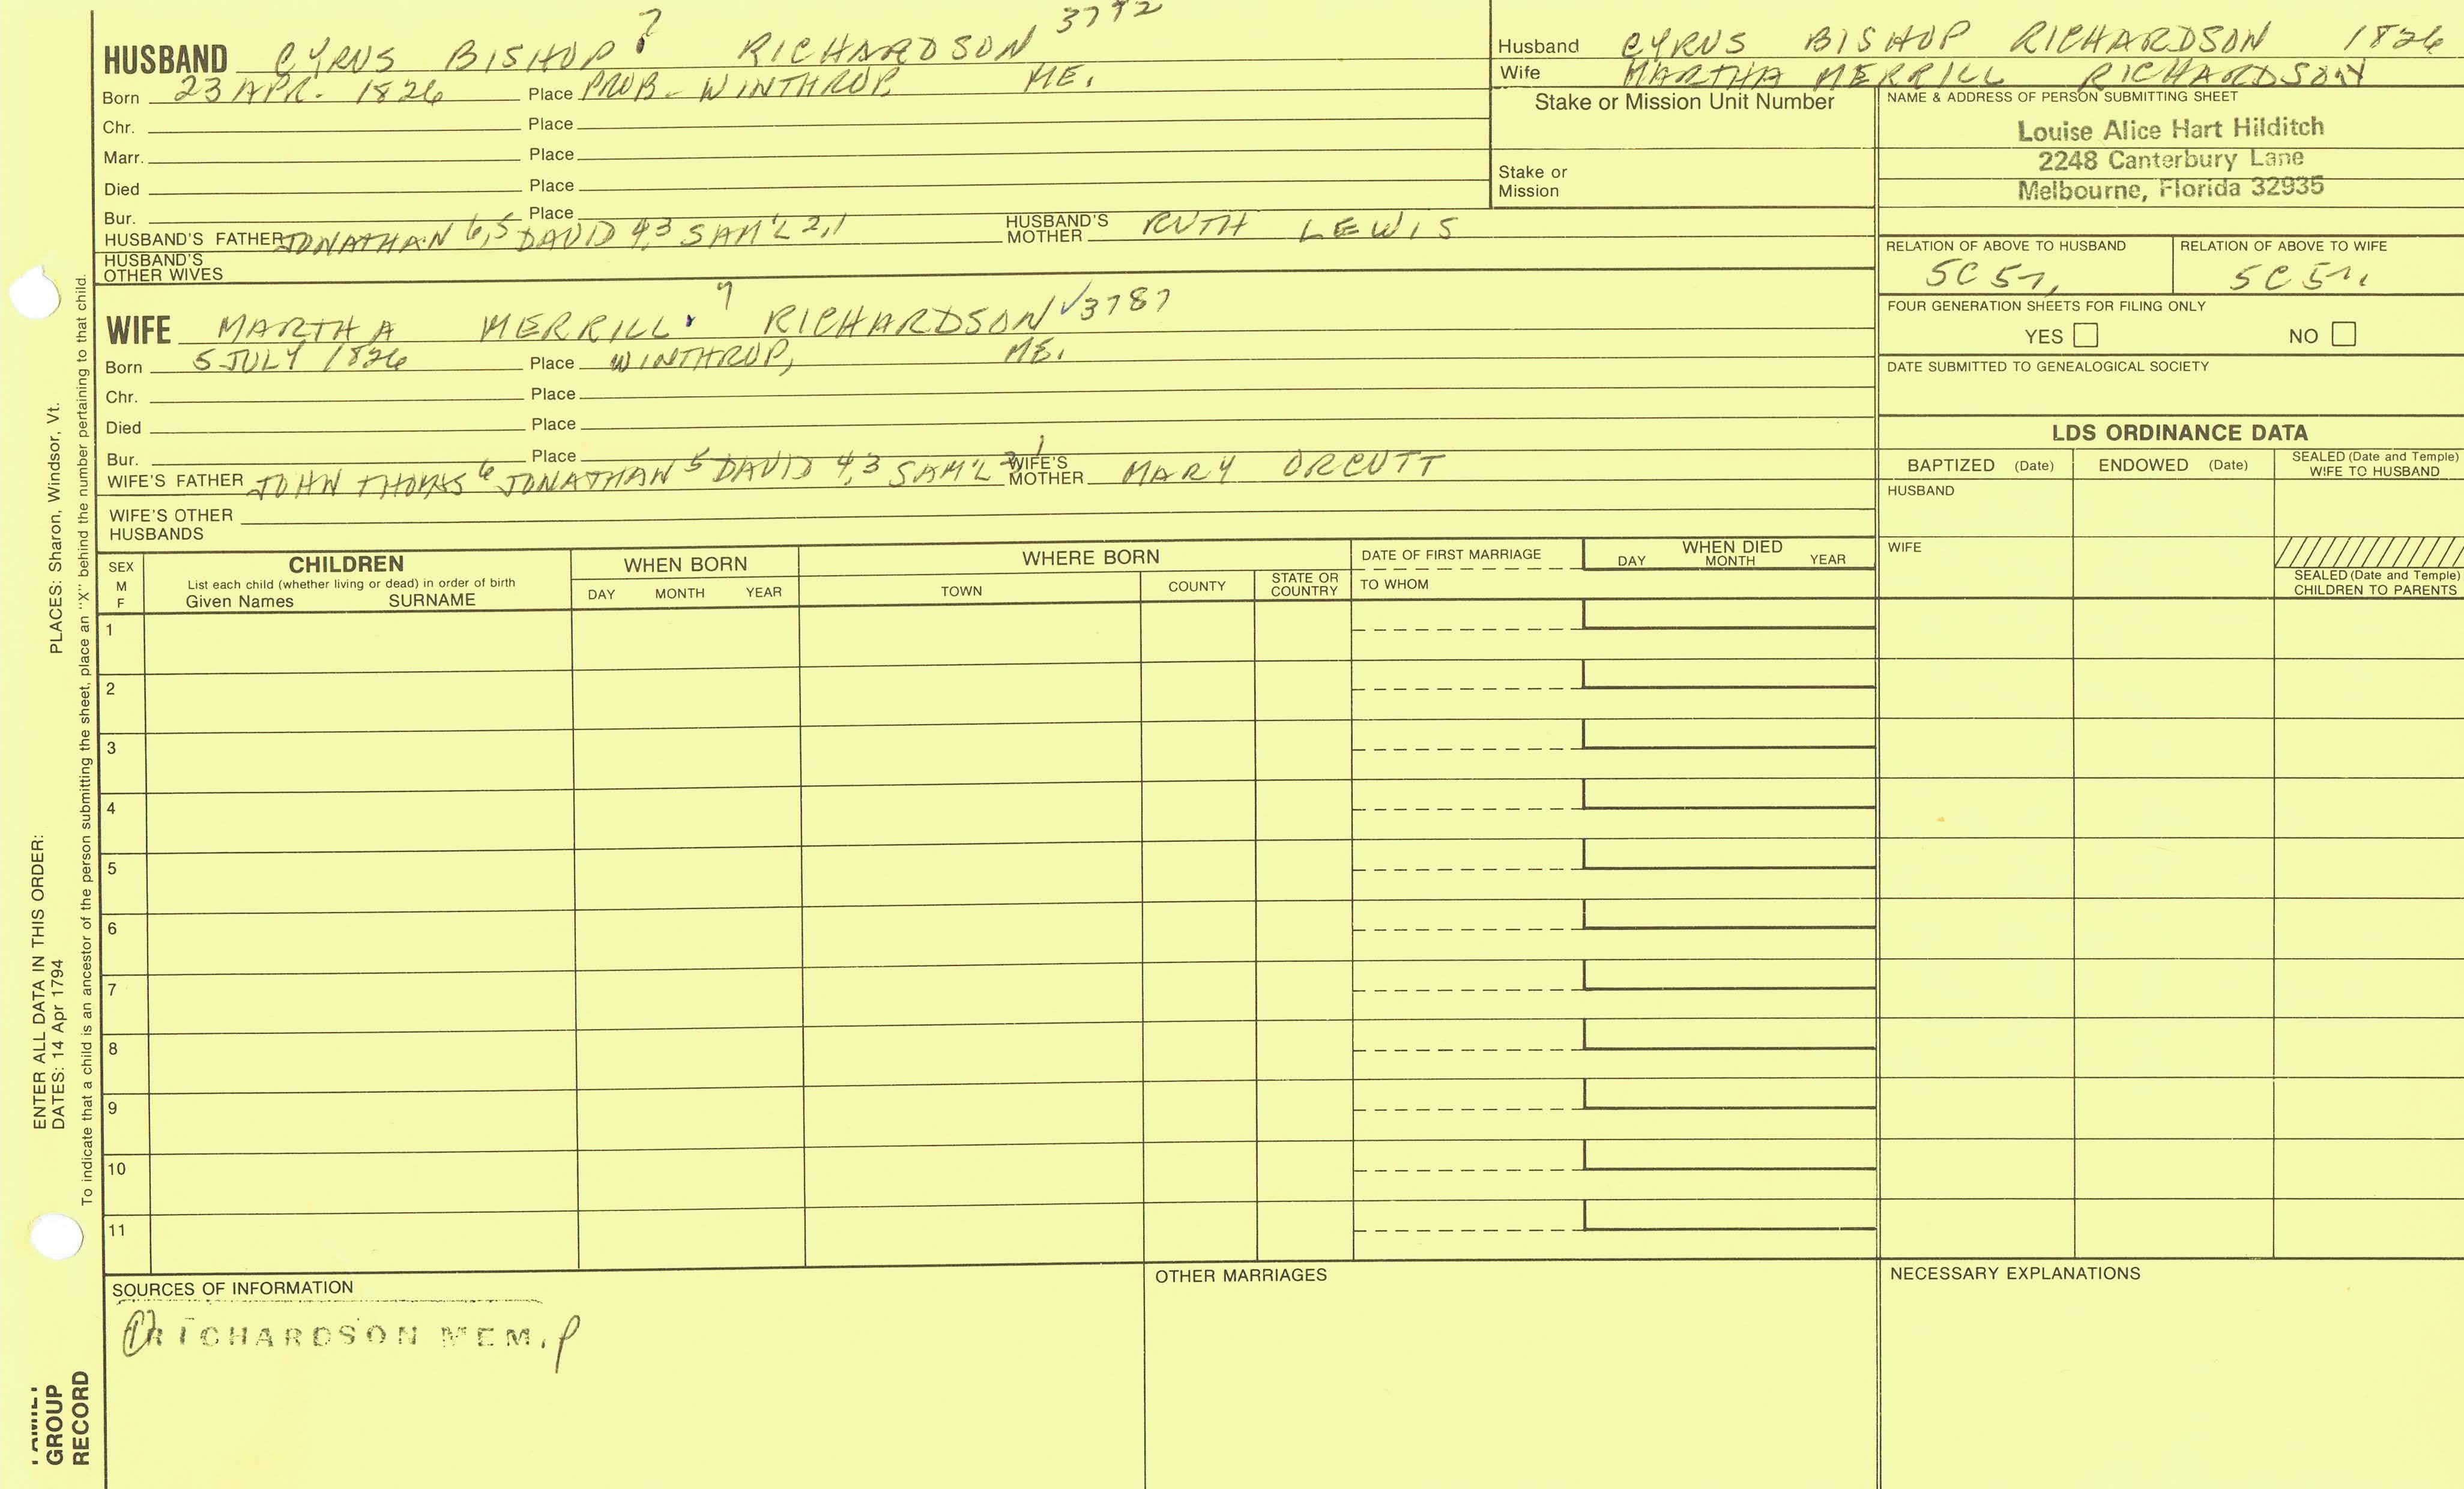 HUSBAND CYRUS BISHOP 7 RICHARDSON 3792
Born 23 APR. 1826 Place PROB. WINTHROP, ME.
Chr. Place
Marr. Place
Died Place
Bur. Place
HUSBAND'S FATHER JONATHAN 6,5 DAVID 4,3 SAM'L 2,1 HUSBAND'S MOTHER RUTH LEWIS
HUSBAND'S OTHER WIVES
WIFE MARTHA MERRILL 7 RICHARDSON ✓3787
Born 5 JULY 1826 Place WINTHROP, ME.
Chr. Place
Died Place
Bur. Place
WIFE'S FATHER JOHN THOMAS 6 JONATHAN 5 DAVID 4,3 SAM'L 2,1 WIFE'S MOTHER MARY ORCUTT
WIFE'S OTHER HUSBANDS
Husband CYRUS BISHOP RICHARDSON 1826
Wife MARTHA MERRILL RICHARDSON
Stake or Mission Unit Number
Stake or Mission
NAME & ADDRESS OF PERSON SUBMITTING SHEET
Louise Alice Hart Hilditch
2248 Canterbury Lane
Melbourne, Florida 32935
RELATION OF ABOVE TO HUSBAND RELATION OF ABOVE TO WIFE
5C 5r. 5C 5r.
FOUR GENERATION SHEETS FOR FILING ONLY
YES NO
DATE SUBMITTED TO GENEALOGICAL SOCIETY
LDS ORDINANCE DATA
BAPTIZED (Date) ENDOWED (Date) SEALED (Date and Temple) WIFE TO HUSBAND
HUSBAND
WIFE
SEALED (Date and Temple) CHILDREN TO PARENTS
SEX M F
CHILDREN
List each child (whether living or dead) in order of birth
Given Names SURNAME
WHEN BORN
DAY MONTH YEAR
WHERE BORN
TOWN COUNTY STATE OR COUNTRY
DATE OF FIRST MARRIAGE
TO WHOM
WHEN DIED
DAY MONTH YEAR
1
2
3
4
5
6
7
8
9
10
11
SOURCES OF INFORMATION
① RICHARDSON MEM. P
OTHER MARRIAGES
NECESSARY EXPLANATIONS
ENTER ALL DATA IN THIS ORDER:
DATES: 14 Apr 1794 PLACES: Sharon, Windsor, Vt.
To indicate that a child is an ancestor of the person submitting the sheet, place an "X" behind the number pertaining to that child.
FAMILY
GROUP
RECORD